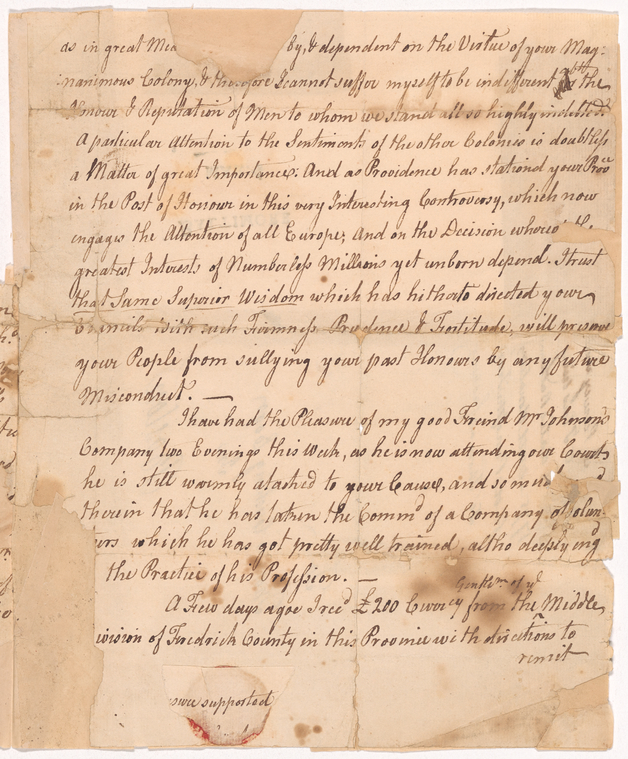 as in great Mea by, & dependent on the Virtue of your Mag-
inanimous Colony, & therefore I cannot suffer myself to be indifferent the
Honour & Reputation of Men to whom we stand all so highly indebted.
A particular Attention to the Sentiments of the other Colonies is doubtless
a Matter of great Importance. And as Providence has stationd your Prov:ce
in the Post of Honour in this very Interesting Controversy, which now
engages the Attention of all Europe; And on the Decision whereof the
greatest Interests of Numberless Millions yet unborn depend. I trust
that Same Superior Wisdom which has hitherto directed your
Councils with such Firmness Prudence & Fortitude, will preserve
your People from sullying your past Honours by any future
Misconduct. —
I have had the Pleasure of my good Freind Mr Johnson's
Company two Evenings this Week, as he is now attending our Court,
he is still warmly atached to your Cause, and so mu d
therein that he has taken the Comm.d of a Company of Volun-
ters which he has got pretty well trained, altho deeply eng.d
the Practice of his Profession. —
Gentlem.n of ye
A Few days agoe I rec.d £200 Curr.cy from the Middle
ivision of Fredrick County in this Province with directions to
remit
supported